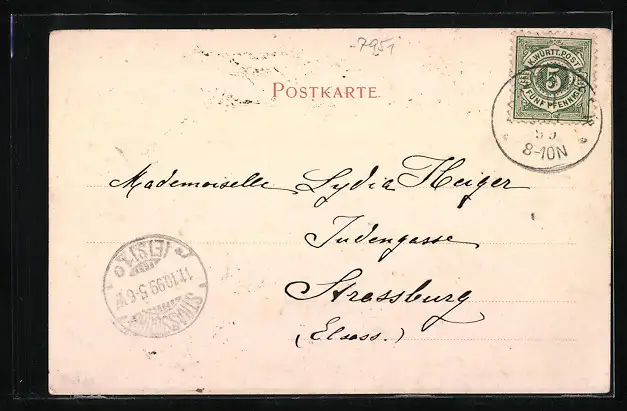 7951
POSTKARTE.
K. WÜRTT. POST
5
FÜNF PFENNIG
99
8-10N
Mademoiselle Lydia Heiger
Judengasse
Strassburg
(Elsass.)
STRASSBURG
11.10.99.5-6
(ELS) 1.